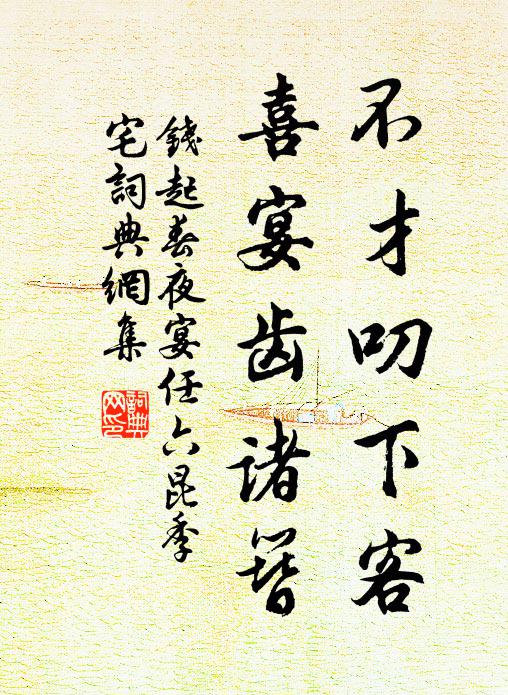 不才叨下客
喜宴齿诸簪
錢起春夜宴任六昆季
宅詞典網集
詞典
网印